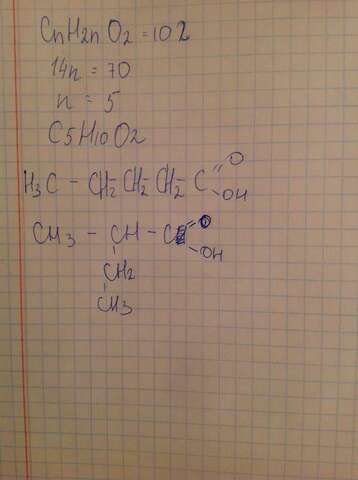 CnH2nO2 = 102
14n = 70
n = 5
C5H10O2
O
H3C - CH2- CH2- CH2- C
OH
CH3 - CH - C = O
OH
CH2
CH3